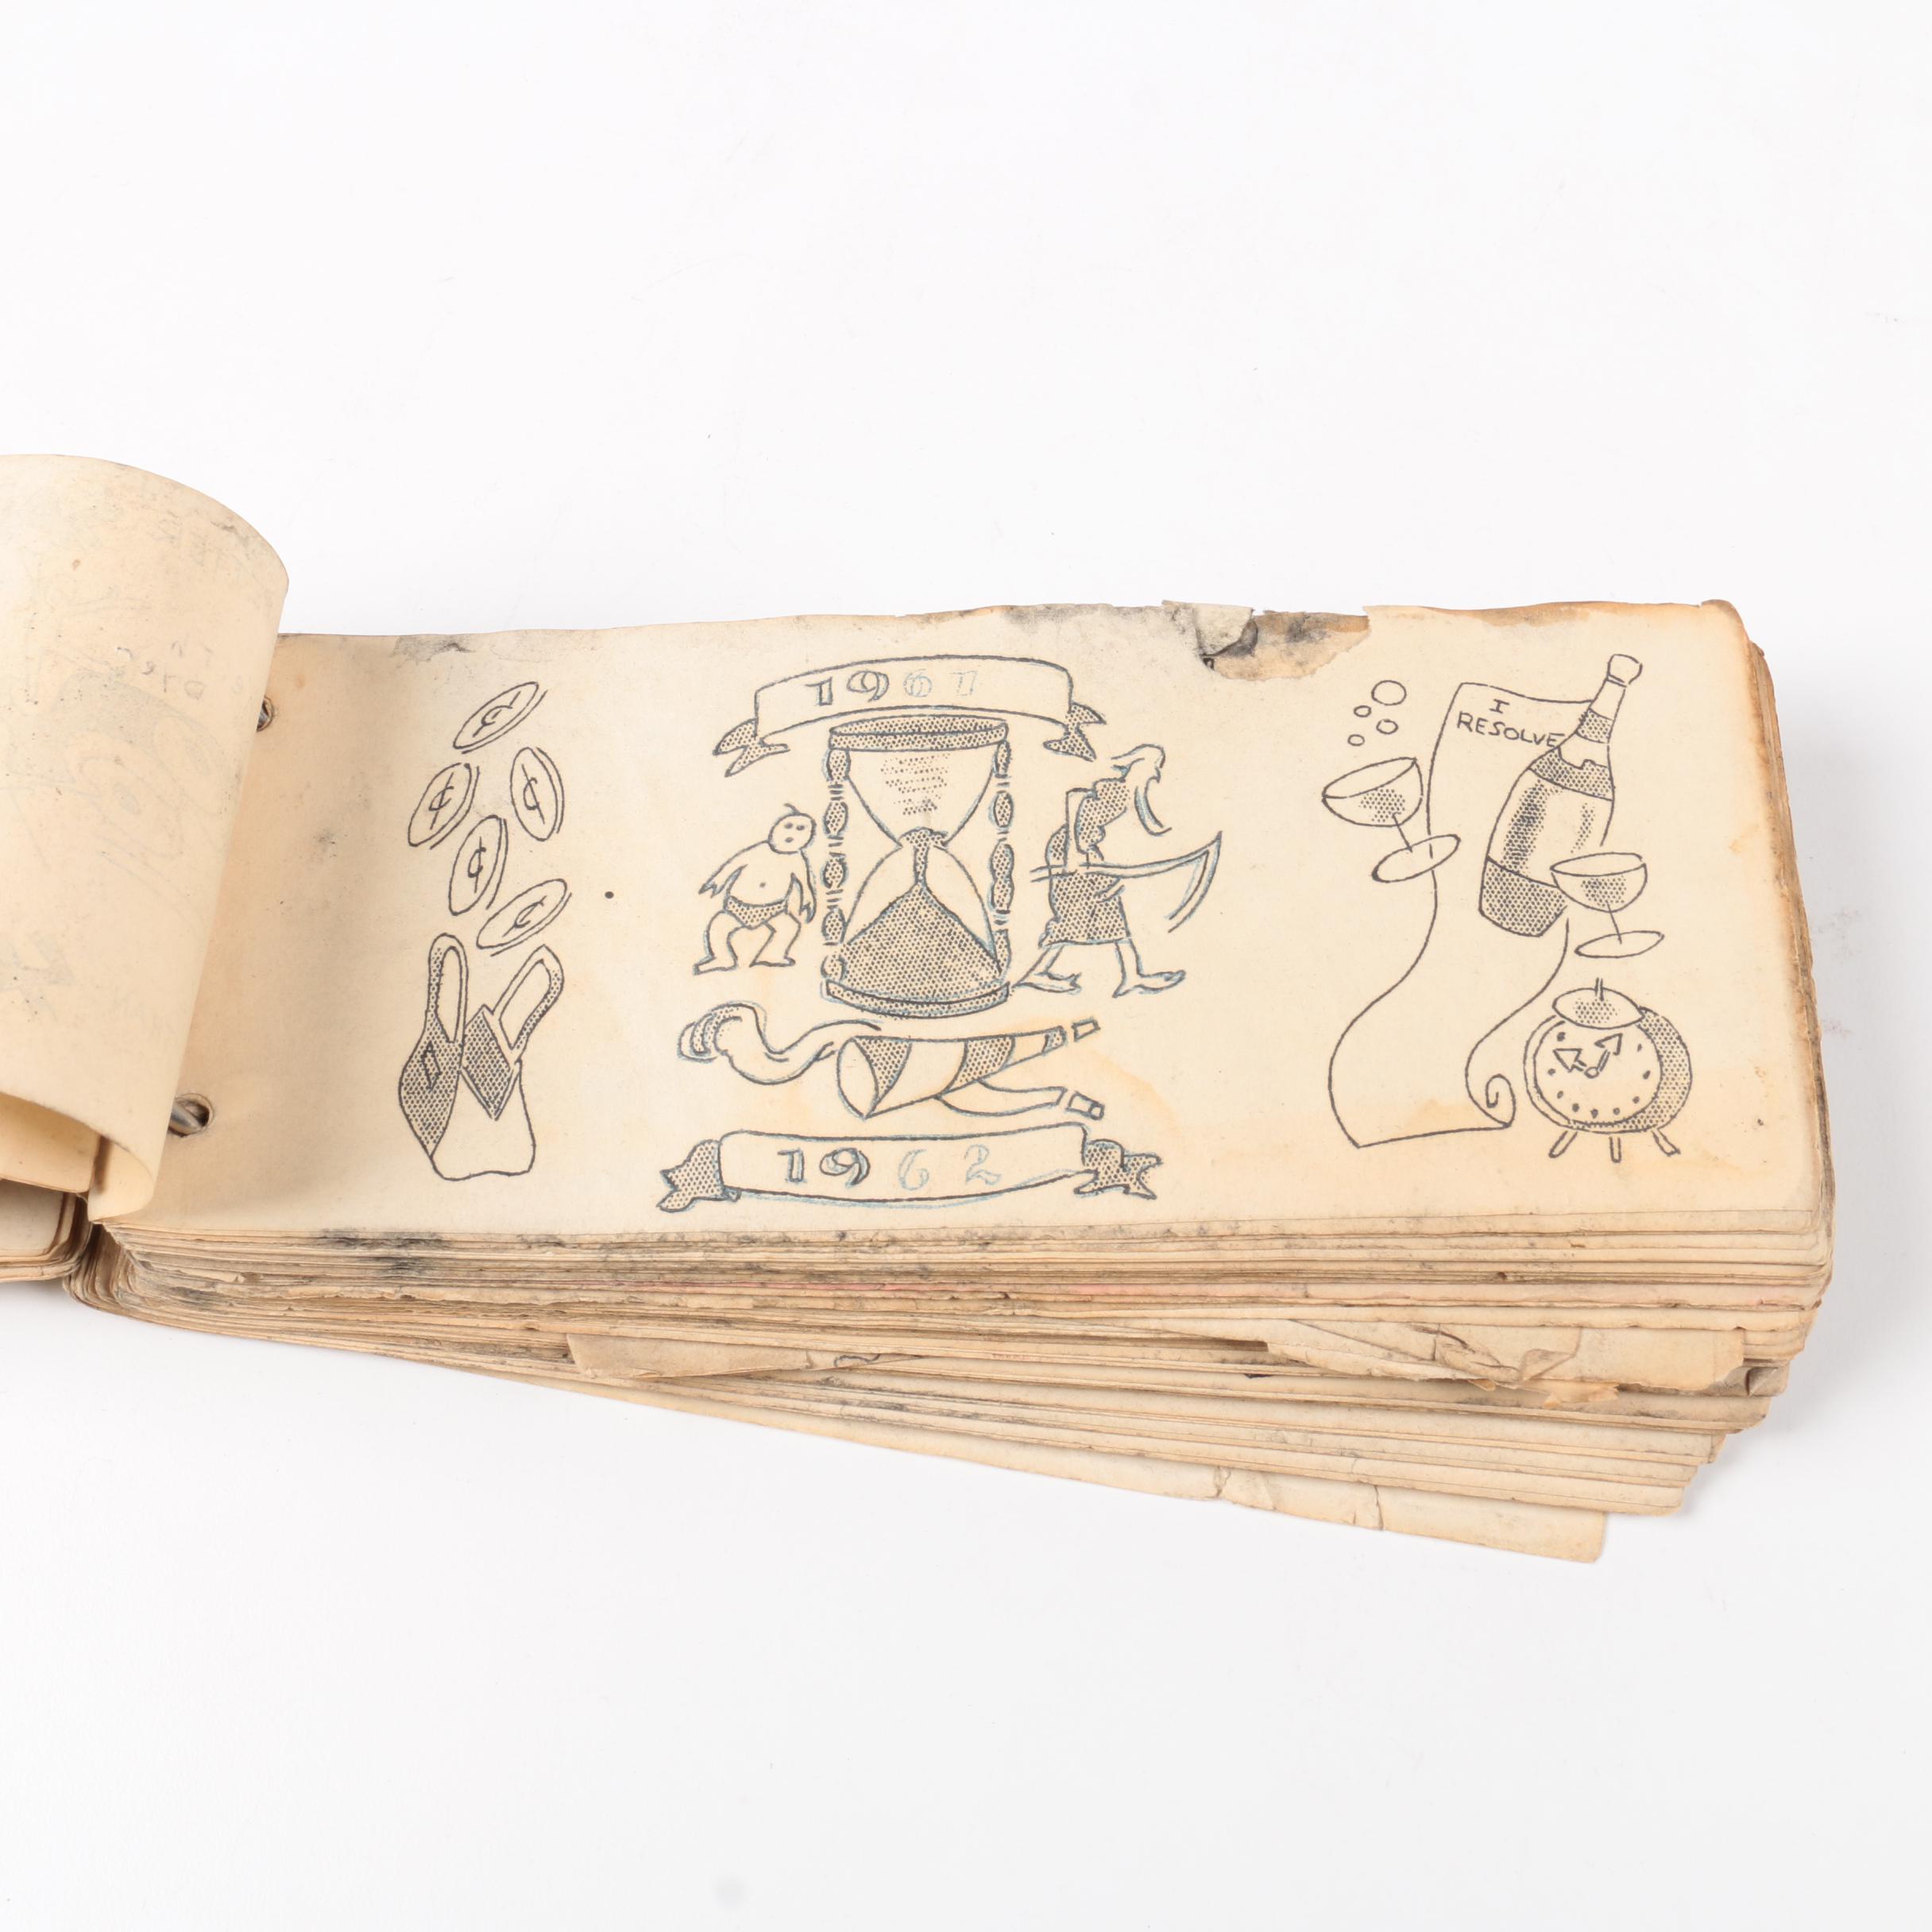 1961
I
RESOLVE
1962